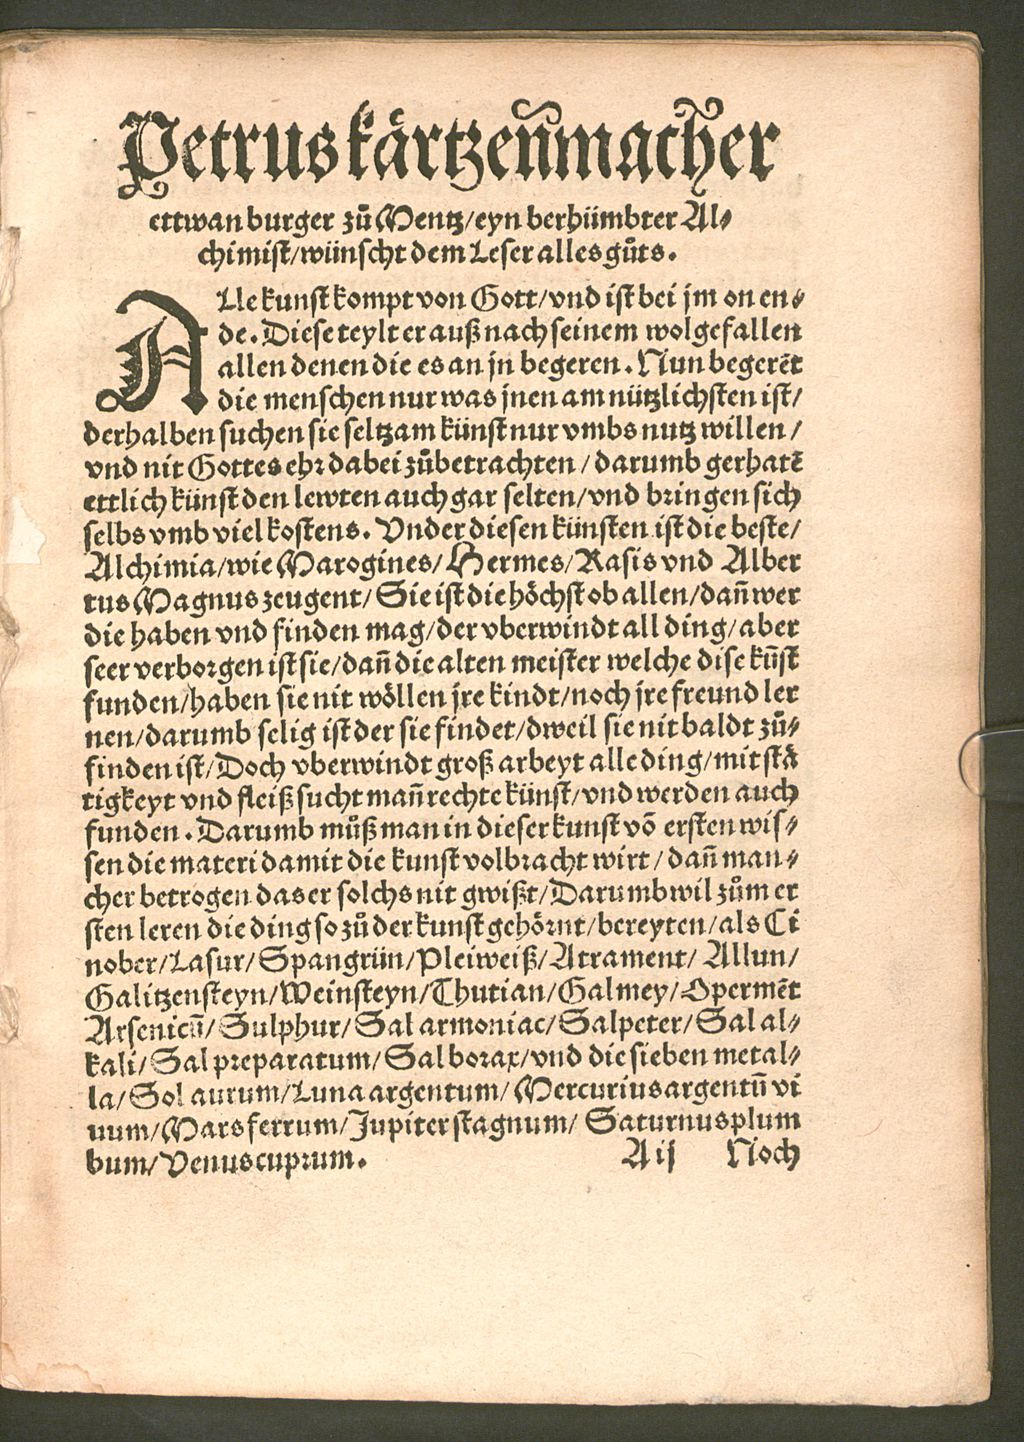 Petrus kärtzen̄macher
ettwan burger zů Mentz/eyn berhümbter Al⸗
chimist/wünscht dem Leser alles gůts.
ALle kunst kompt von Gott/vnd ist bei jm on en⸗
de. Diese teylt er auß nach seinem wolgefallen
allen denen die es an jn begeren. Nun begerēt
die menschen nur was jnen am nützlichsten ist/
derhalben suchen sie seltzam künst nur vmbs nutz willen/
vnd nit Gottes ehr dabei zůbetrachten/darumb gerhatē
ettlich künst den lewten auch gar selten/vnd bringen sich
selbs vmb viel kostens. Vnder diesen künsten ist die beste/
Alchimia/wie Marogines/Hermes/Rasis vnd Alber
tus Magnus zeugent/Sie ist die höchst ob allen/dan̄ wer
die haben vnd finden mag/der vberwindt all ding/aber
seer verborgen ist sie/dan̄ die alten meister welche dise kün̄st
funden/haben sie nit wöllen jre kindt/noch jre freund ler
nen/darumb selig ist der sie findet/dweil sie nit baldt zů⸗
finden ist/Doch vberwindt groß arbeyt alle ding/mit stä
tigkeyt vnd fleiß sucht man̄ rechte künst/vnd werden auch
funden. Darumb můß man in dieser kunst vō ersten wis⸗
sen die materi damit die kunst volbracht wirt/dan̄ man⸗
cher betrogen das er solchs nit gwißt/Darumb wil zům er
sten leren die ding so zů der kunst gehörnt/bereyten/als Ci
nober/Lasur/Spangrün/Pleiweiß/Atrament/Allun/
Galitzensteyn/Weinsteyn/Thutian/Galmey/Opermēt
Arsenicū/Sulphur/Sal armoniac/Salpeter/Sal al⸗
kali/Sal preparatum/Sal borax/vnd die sieben metal⸗
la/Sol aurum/Luna argentum/Mercurius argentū vi
uum/Mars ferrum/Jupiter stagnum/Saturnus plum
bum/Venus cuprum. A ij Noch